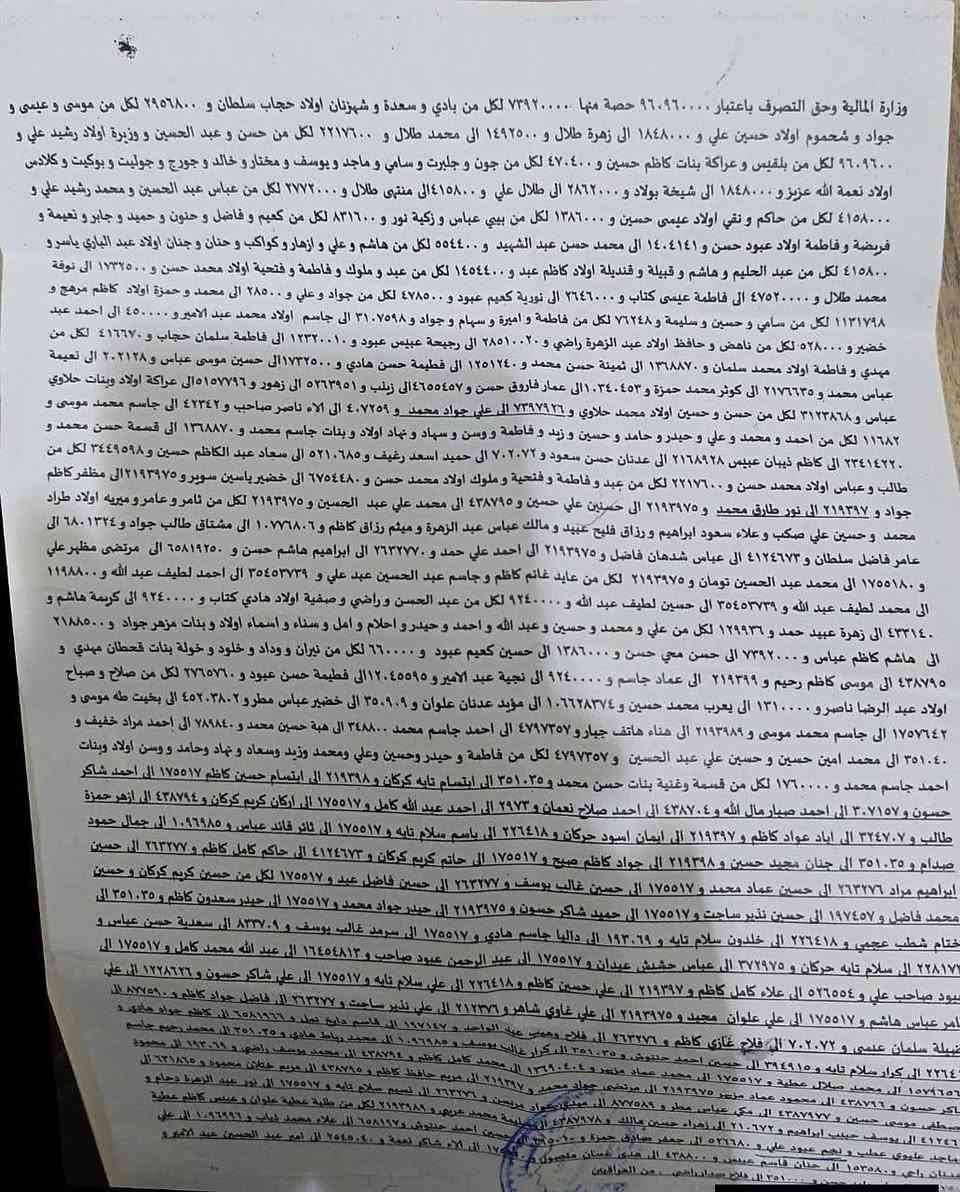 وزارة المالية وحق التصرف باعتبار ٩٦٠٩٦٠٠٠٠ حصة منها ٧٣٩٢٠٠٠٠ لكل من بادي و سعدة و شهزنان اولاد حجاب سلطان و ٢٩٥٦٨٠٠ لكل من موسى و عيسى و
جواد و شحموم اولاد حسين علي و ١٨٤٨٠٠٠ الى زهرة طلال و ١٤٩٢٥٠٠ الى محمد طلال و ٢٢١٧٦٠٠ لكل من حسن و عبد الحسين و وزيرة اولاد رشيد علي و
٩٦٠٩٦٠٠ لكل من بلقيس و عراكة بنات كاظم حسين و ٤٧٠٤٠٠ لكل من جون و جلبرت و سامي و ماجد و يوسف و مختار و خالد و جورج و جوليت و بوكيت و كلادس
اولاد نعمة الله عزيز و ١٨٤٨٠٠٠ الى شيخة بولاد و ٢٨٦٢٠٠٠ الى طلال علي و ٤١٥٨٠٠٠الى منتهى طلال و ٢٧٧٢٠٠٠ لكل من عباس عبد الحسين و محمد رشيد علي و
٤١٥٨٠٠٠ لكل من حاكم و نقي اولاد عيسى حسين و ١٣٨٦٠٠٠ لكل من بيبي عباس و زكية نور و ٨٣١٦٠٠ لكل من كعيم و فاضل و حنون و حميد و جابر و نعيمة و
فريضة و فاطمة اولاد عبود حسن و ١٤٠٤١٤١ الى محمد حسن عبد الشهيد و ٥٥٤٤٠٠ لكل من هاشم و علي و ازهار و كواكب و حنان و جنان اولاد عبد الباري ياسر و
٤١٥٨٠٠ لكل من عبد الحليم و هاشم و قبيلة و قنديلة اولاد كاظم عبد و ١٤٥٤٤٠٠ لكل من عبد و ملوك و فاطمة و فتحية اولاد محمد حسن و ١٧٣٢٥٠٠ الى نوفة
محمد طلال و ٤٧٥٢٠٠٠٠ الى فاطمة عيسى كتاب و ٢٦٤٦٠٠٠ الى نورية كعيم عبود و ٤٧٨٥٠٠ لكل من جواد و علي و ٢٨٥٠٠ الى محمد و حمزة اولاد كاظم مرهج و
١١٣١٧٩٨ لكل من سامي و حسين و سليمة و ٧٦٢٤٨ لكل من فاطمة و اميرة و سهام و جواد و ٣١٠٧٥٩٨ الى جاسم اولاد محمد عبد الامير و ٤٥٠٠٠٠ الى احمد عبد
خضير و ٥٢٨٠٠٠ لكل من ناهض و حافظ اولاد عبد الزهرة راضي و ٢٨٥١٠٠٢٠ الى رجيحة عبيس عبود و ١٢٣٢٠٠١٠ الى فاطمة سلمان حجاب و ٤١٦٦٧٠ لكل من
مهدي و فاطمة اولاد محمد سلمان و ١٣٦٨٨٧٠ الى ثمينة حسن محمد و ١٢٥١٢٤٠ الى فطيمة حسن هادي و ١٧٣٢٥٠٠الى حسين موسى عباس و ٢٠٢١٢٨ الى نعيمة
عباس محمد و ٢١٧٦٦٣٥ الى كوثر محمد حمزة و ١٠٣٤٠٤٥٣الى عمار فاروق حسن و ٤٦٥٥٤٥٧الى زينب و ٥٢٦٣٩٥١ الى زهور و ٥١٥٧٧٩٦الى عراكة اولاد وبنات حلاوي
عباس و ٣١٢٣٨٦٨ لكل من حسن و حسين اولاد محمد حلاوي و ٧٣٩٧٩٢٦ الى علي جواد محمد و ٤٠٧٢٥٩ الى الاء ناصر صاحب و ٤٢٣٤٢ الى جاسم محمد موسى و
١١٦٨٢ لكل من احمد و محمد و علي و حيدر و حامد و حسين و زيد و فاطمة و وسن و سهاد و نهاد اولاد و بنات جاسم محمد و ١٣٦٨٨٧٠ الى قسمة حسن محمد و
٢٣٤١٤٢٢٠ الى كاظم ذيبان عبيس و ٢١٦٨٩٢٨ الى عدنان حسن سعود و ٧٠٢٠٧٢ الى حميد اسعد رغيف و ٥٢١٠٦٨٥ الى سعاد عبد الكاظم حسين و ٣٤٤٩٥٩٨ لكل من
طالب و عباس اولاد محمد حسن و ٢٢١٧٦٠٠ لكل من عبد و فاطمة و فتحية و ملوك اولاد محمد حسن و ٦٧٥٤٤٨٠ الى خضير ياسين سوير و ٢١٩٣٩٧٥الى مظفر كاظم
جواد و ٢١٩٣٩٧ الى نور طارق محمد و ٢١٩٣٩٧٥ الى حسنين علي حسين و ٤٣٨٧٩٥ الى محمد علي عبد الحسين و ٢١٩٣٩٧٥ لكل من ثامر و عامر و ميريه اولاد طراد
محمد و حسين علي صكب و علاء سعود ابراهيم و رزاق فليح عبيد و مالك عباس عبد الزهرة و ميثم رزاق كاظم و ١٠٧٧٦٨٠٦ الى مشتاق طالب جواد و ٦٨٠١٣٢٤ الى
عامر فاضل سلطان و ٤١٢٤٦٧٣ الى عباس شدهان فاضل و ٢١٩٣٩٧٥ الى احمد علي حمد و ٢٦٣٢٧٧٠ الى ابراهيم هاشم حسن و ٦٥٨١٩٢٥٠ الى مرتضى مظهر علي
و ١٧٥٥١٨٠ الى محمد عبد الحسين تومان و ٢١٩٣٩٧٥ لكل من عايد غانم كاظم و جاسم عبد الحسين عبد علي و ٣٥٤٥٣٧٣٩ الى احمد لطيف عبد الله و ١١٩٨٨٠٠
الى محمد لطيف عبد الله و ٣٥٤٥٣٧٣٩ الى حسين لطيف عبد الله و ٩٢٤٠٠٠٠ لكل من عبد الحسن و راضي و صفية اولاد هادي كتاب و ٩٢٤٠٠٠٠ الى كريمة هاشم و
٤٣٣١٤٠ الى زهرة عبيد حمد و ١٢٩٩٣٦ لكل من علي و محمد و حسين و عبد الله و احمد و حيدر و احلام و امل و سناء و اسماء اولاد و بنات مزهر جواد و ٢١٨٨٥٠٠
الى هاشم كاظم عباس و ٧٣٩٢٠٠٠ الى حسن محي حسن و ١٣٨٦٠٠٠ الى حسين كعيم عبود و ٦٦٠٠٠٠ لكل من نيران و وداد و خلود و خولة بنات قحطان مهدي و
٤٣٨٧٩٥ الى موسى كاظم رحيم و ٢١٩٣٩٩ الى عماد جاسم و ٩٢٤٠٠٠٠ الى نجية عبد الامير و ١٢٠٤٥٥٩٥الى فطيمة حسن عبود و ٢٧٦٥٧٦٠ لكل من صلاح و صباح
اولاد عبد الرضا ناصر و ١٣١٠٠٠٠ الى يعرب محمد حسين و ١٠٦٦٢٨٣٧٤ الى مؤيد عدنان علوان و ٣٥٠٩٠٩ الى خضير عباس مطر و ٤٥٢٠٣٨٠٢ الى بخيت طه موسى و
١٧٥٧٦٤٢ الى جاسم محمد موسى و ٢١٩٣٩٨٩ الى هناء هاتف جيار و ٤٧٩٧٣٥٧ الى احمد جاسم محمد ٣٤٨٨٠٠ الى هبة حسين محمد و ٧٨٩٨٤٠ الى احمد مراد خفيف و
٣٥١٠٤٠ الى محمد امين حسين و حسين علي عبد الحسين و ٤٧٩٧٣٥٧ لكل من فاطمة و حيدر وحسين وعلي ومحمد وزيد وسعاد و نهاد وحامد و وسن اولاد وبنات
احمد جاسم محمد و ١٧٦٠٠٠٠ لكل من قسمة وغنية بنات حسن محمد و ٣٥١٠٣٥ الى ابتسام تايه كركان و ٢١٩٣٩٨ الى ابتسام حسين كاظم ١٧٥٥١٧ الى احمد شاكر
حسون و ٣٠٧١٥٧ الى احمد صبار مال الله و ٤٣٨٧٠٤ الى احمد صلاح نعمان و ٢٩٧٣ الى احمد عبد الله كامل و ١٧٥٥١٧ الى اركان كريم كركان و ٤٣٨٧٩٤ الى ازهر حمزة
طالب و ٣٢٤٧٠٧ الى اياد عواد كاظم و ٢١٩٣٩٧ الى ايمان اسود حركان و ٢٢٦٤١٨ الى باسم سلام تايه و ١٧٥٥١٧ الى ثائر قائد عباس و ١٠٩٦٩٨٥ الى جمال حمود
صدام و ٣٥١٠٣٥ الى جنان مجيد حسين و ٢١٩٣٩٨ الى جواد كاظم صبح و ١٧٥٥١٧ الى حاتم كريم كركان و ٤١٢٤٦٧٣ الى حاكم كامل كاظم و ٢٦٣٢٧٧ الى حسين
ابراهيم مراد ٢٦٣٢٧٦ الى حسين عماد محمد و ١٧٥٥١٧ الى حسين غالب يوسف و ٢٦٣٢٧٧ الى حسين فاضل عبد و ١٧٥٥١٧ لكل من حسين كريم كركان و حسين
محمد فاضل و ١٩٧٤٥٧ الى حسين نذير ساجت و ١٧٥٥١٧ الى حميد شاكر حسون و ٢١٩٣٩٧٥ الى حيدر جواد محمد و ١٧٥٥١٧ الى حيدر سعدون كاظم و ٣٥١٠٣٥ الى
ختام شطب عجمي و ٢٢٦٤١٨ الى خلدون سلام تايه و ١٩٣٠٦٩ الى داليا جاسم هادي و ١٧٥٥١٧ الى سرمد غالب يوسف و ٨٣٣٧٠٩ الى سعدية حسن عباس و
الى سلام تايه حركان و ٣٧٢٩٧٥ الى عباس حشيش عبدان و ١٧٥٥١٧ الى عبد الرحمن عبود صاحب و ١٦٤٥٤٨١٣ الى عبد الله محمد كامل و ١٧٥٥١٧ الى
عبود صاحب علي و ٥٢٦٥٥٤ الى علاء كامل كاظم و ٢١٩٣٩٧ الى علي حسين كاظم و ٢٢٦٤١٨ الى علي سلام تايه و ١٧٥٥١٧ الى علي شاكر حسون و ١٢٢٨٦٢٦ الى علي
عباس هاشم و ١٧٥٥١٧ الى علي علوان مجيد و ٢١٩٣٩٧٥ الى علي غاوي شاهر و ٢١٢٣٧٦ الى علي نذير ساجت و ٢٦٣٢٧٧ الى فاضل جواد كاظم و ٨٧٧٥٩٠ الى
سلمان عنسى و ٧٠٢٠٧٢ الى فلاح غازي كاظم و ٢٦٣٢٧٦ الى فلاح وهمي عبد الواحد و ١٩٧١٤٧ الى قاسم دايخ نجل و ٦٥٨١٩٦٦ الى كاظم جواد هادي و
الى كرار سلام تايه و ٣٩٤٩١٥ الى حسين احمد حنتوش و ٣٥١٠٣٥ الى كرار غالب يوسف و ١٠٩٦٩٨٥ الى محمد رباط هادي و ٣٥١٠٣٥ الى محمد رحيم جاسم
الى محمد صلال عطية و ١٧٥٥١٧ الى محمد عماد مزهر و ١٣٦٩٠٤٠٤ الى محمد كامل كاظم و ٤٣٨٧٩٤ الى محمد يوسف راضي و ١٩٣٠٦٩ الى محمود
شاكر حسون و ٤٣٨٧٩٦ الى محمود عماد مزهر ٢١٩٣٩٧٥ الى مرتضى جواد محمد و ٢١٩٣٩٧ الى مريم حافظ كاظم و ٤٣٨٧٩٥ الى مريم ختلان محمود و ٦٣١٨٦٥ الى
مصطفى موسى حسين و ٤٣٨٧٩٧٧ الى مكي عباس مطر و ٨٧٧٥٨٩ الى مهدي جواد و ٢٦٣٢٧٦ الى نسيم سلام تايه و ١٧٥٥١٧ الى نور عبد الزهرة دحام و
الى يوسف حبيب ابراهيم و ٢١٠٦٧٢ الى زهراء حسين مالك و ٤٣٨٧٩٧٨ الى محمد عربي و ٢١٩٣٩٨٩ لكل من طلبة عطية علوان و عبيس كاظم عطية
ماجد عليوي عطب و نجم عبود علي و ٥٢٦٦٨٠ الى جعفر صادق حمزة و الى حسين احمد حنتوش و ٦٥٨١٩٧ الى علاء محمد ذياب و ١٠٩٦٩٩٦ الى علي
عدنان راحي و ١٥٣٥٨٠ الى حنان قاسم عبيس و ٤٣٨٨٠٠ الى هدى غسان الى الاء شاكر نعمة و ٢٥٤٥٠٤٠ الى امير عبد الحسين عبد الامير و
حسن و ٣٥١٠٠٠ الى فلاح من العراقيين